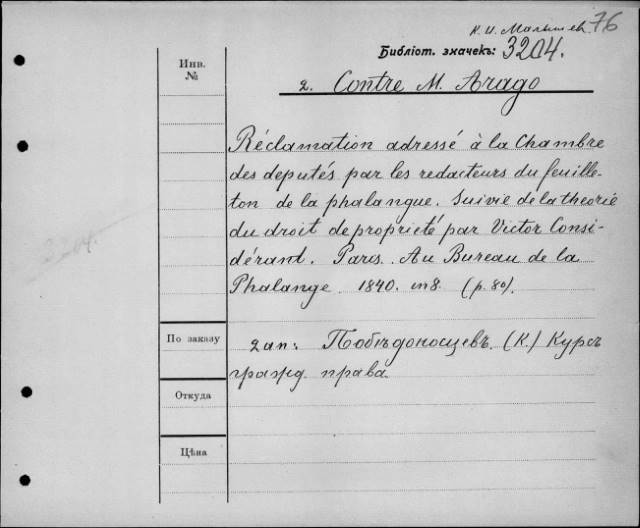 К. И. Малышев. 76
Библіот. значекъ: 3204.
Инв.
№
2. Contre M. Arago
Réclamation adressé à la Chambre
des deputés par les redacteurs du feuille-
ton de la phalangue. Suivie de la theorie
du droit de propriété par Victor Consi-
dérant. Paris. Au Bureau de la
Phalange 1840. in 8. (p. 80).
3204.
По заказу
2 ап: Побѣдоносцевъ. (К.) Курсъ
гражд. права
Откуда
Цѣна